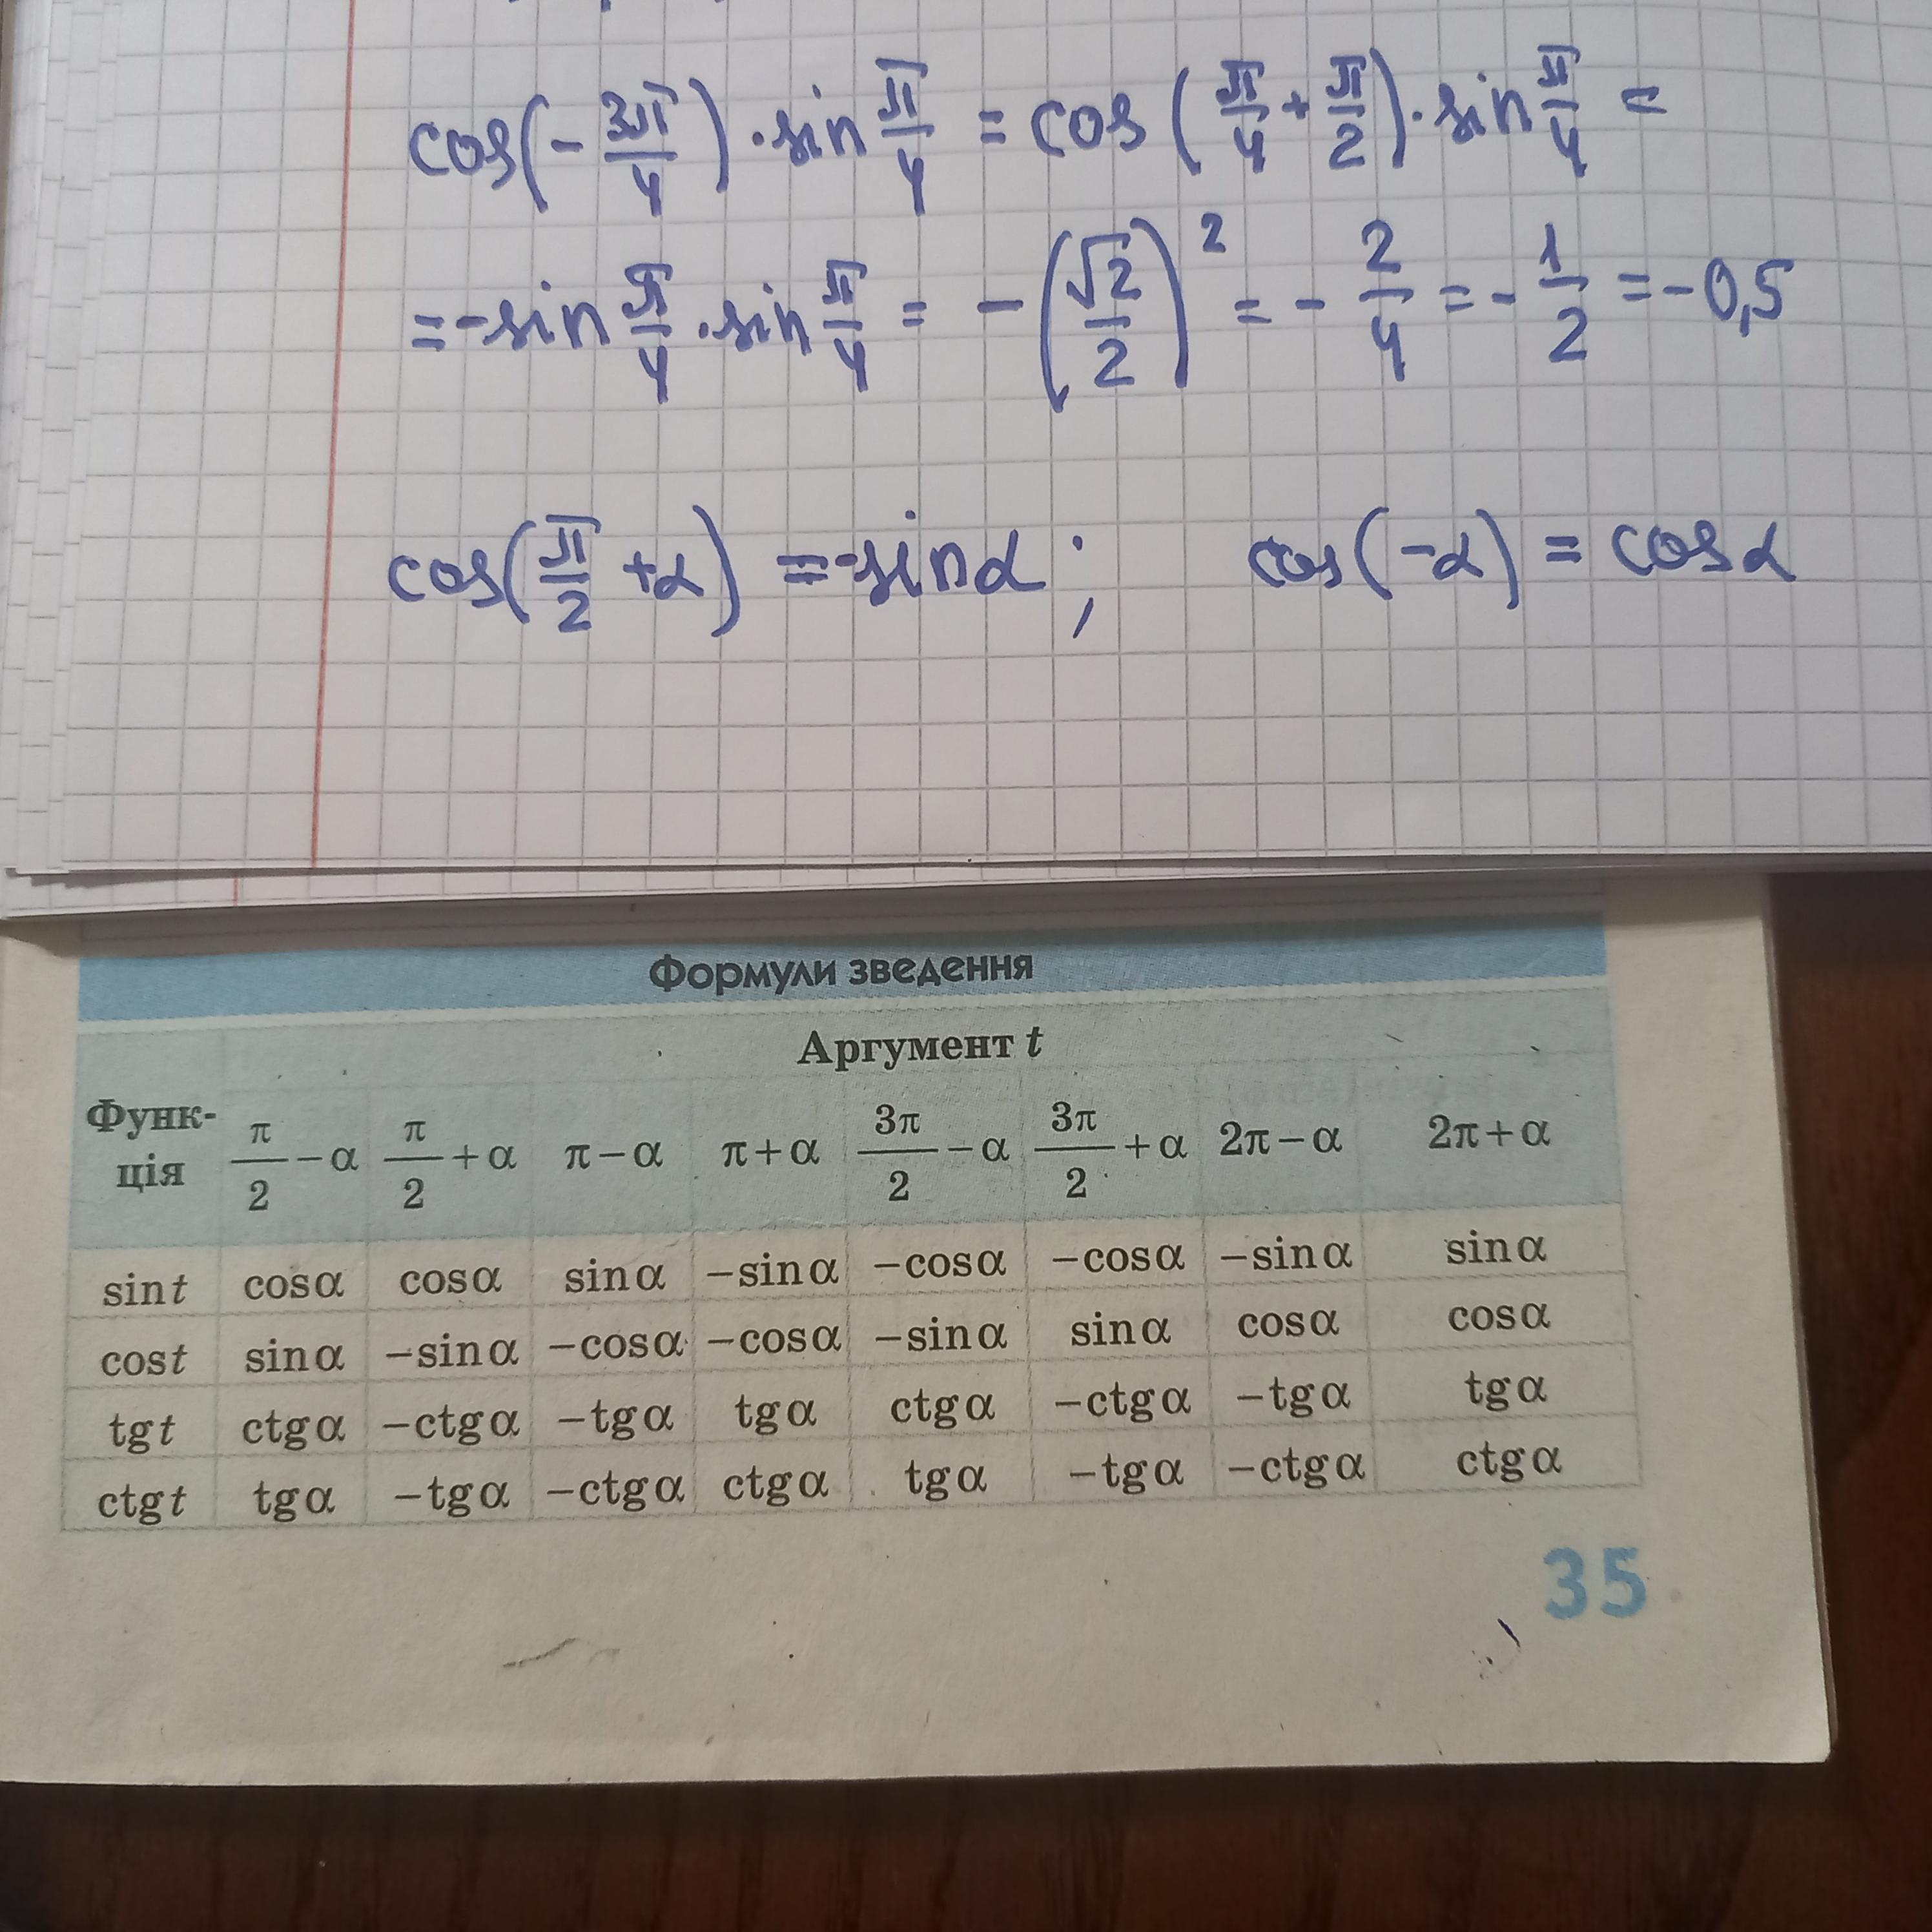 cos(-3π/4)·sin π/4 = cos(π/4+π/2)·sin π/4 =
= -sin π/4·sin π/4 = -(√2/2)² = -2/4 = -1/2 = -0,5
cos(π/2+α) = -sinα; cos(-α) = cosα
Формули зведення
Функція Аргумент t
π/2-α π/2+α π-α π+α 3π/2-α 3π/2+α 2π-α 2π+α
sint cosα cosα sinα -sinα -cosα -cosα -sinα sinα
cost sinα -sinα -cosα -cosα -sinα sinα cosα cosα
tgt ctgα -ctgα -tgα tgα ctgα -ctgα -tgα tgα
ctgt tgα -tgα -ctgα ctgα tgα -tgα -ctgα ctgα
35